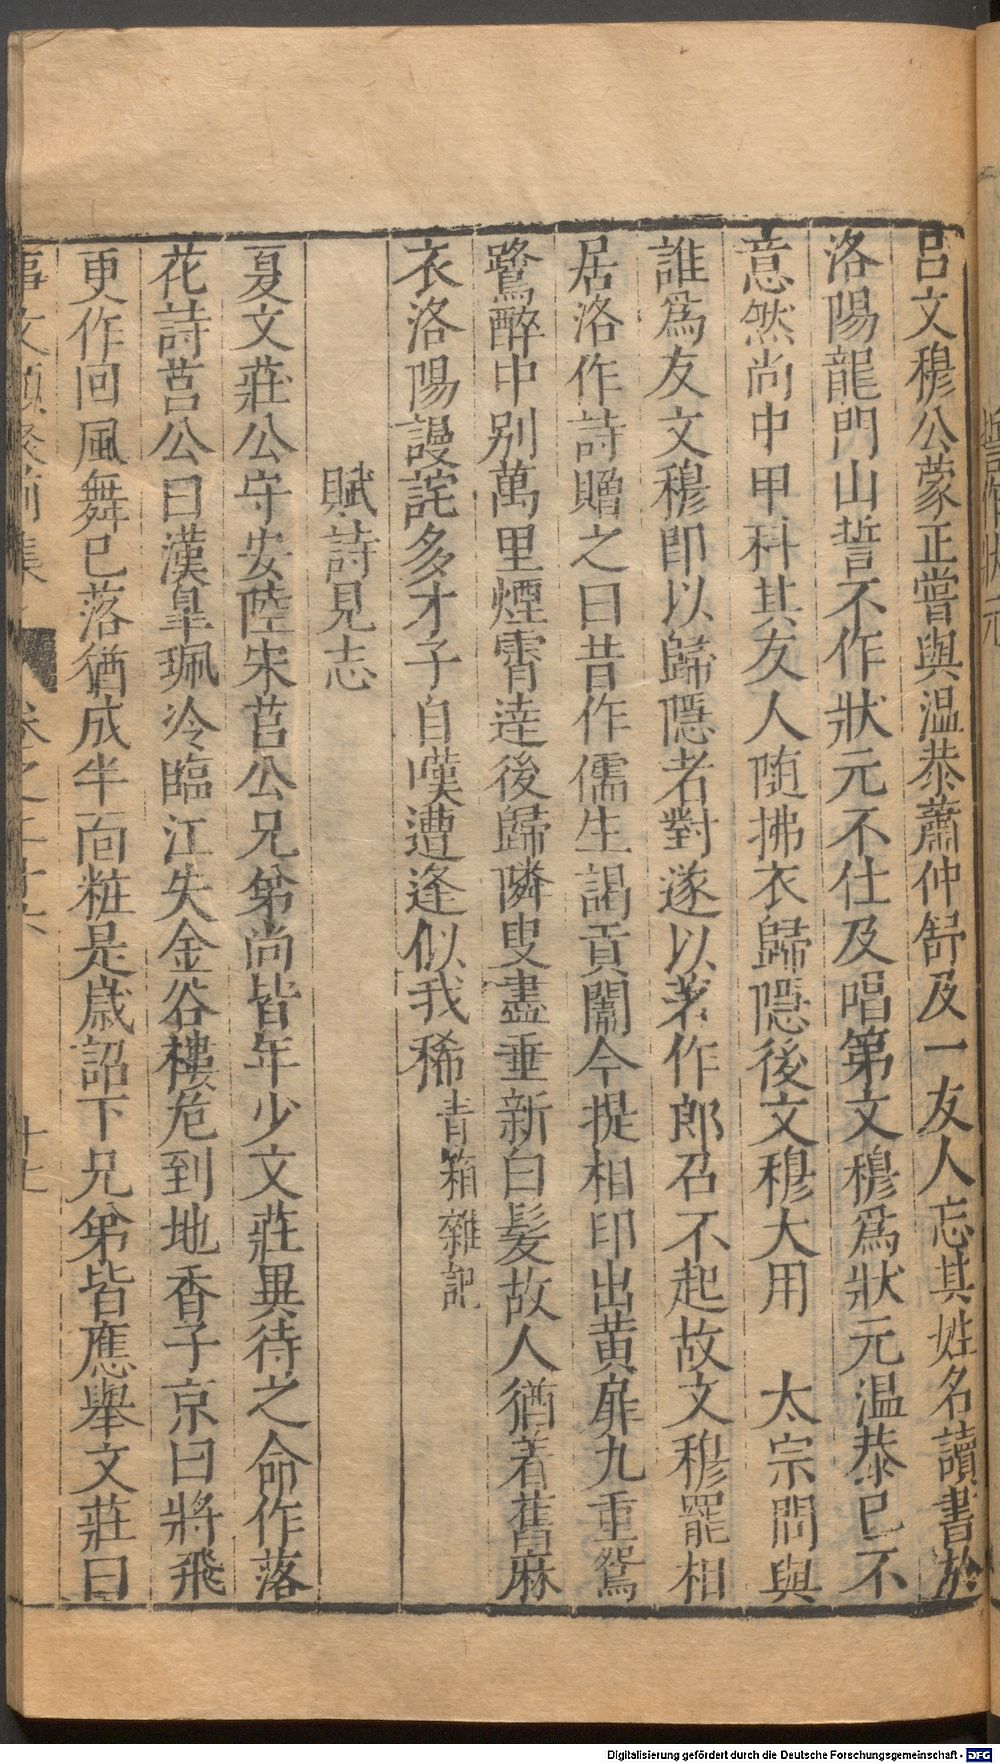 呂文穆公蒙正嘗與温恭蕭仲舒及一友人忘其姓名讀書於
洛陽龍門山誓不作狀元不仕及唱第文穆爲狀元温恭已不
意然尚中甲科其友人随拂衣歸隱後文穆大用　太宗問與
誰爲友文穆即以歸隱者對遂以著作郎召不起故文穆罷相
居洛作詩贈之曰昔作儒生謁貢闈今提相印出黄扉九重鴛
鷺醉中别萬里煙霄逹後歸隣叟盡垂新白髪故人猶着舊麻
衣洛陽謾詫多才子自嘆遭逢似我稀青箱雜記
賦詩見志
夏文莊公守安陸宋莒公兄弟尚皆年少文莊異待之命作落
花詩莒公曰漢臯珮冷臨江失金谷樓危到地香子京曰將飛
更作回風舞已落猶成半面粧是歳詔下兄弟皆應舉文莊曰
事文類聚前集 卷之二十六 十七
Digitalisierung gefördert durch die Deutsche Forschungsgemeinschaft - DFG